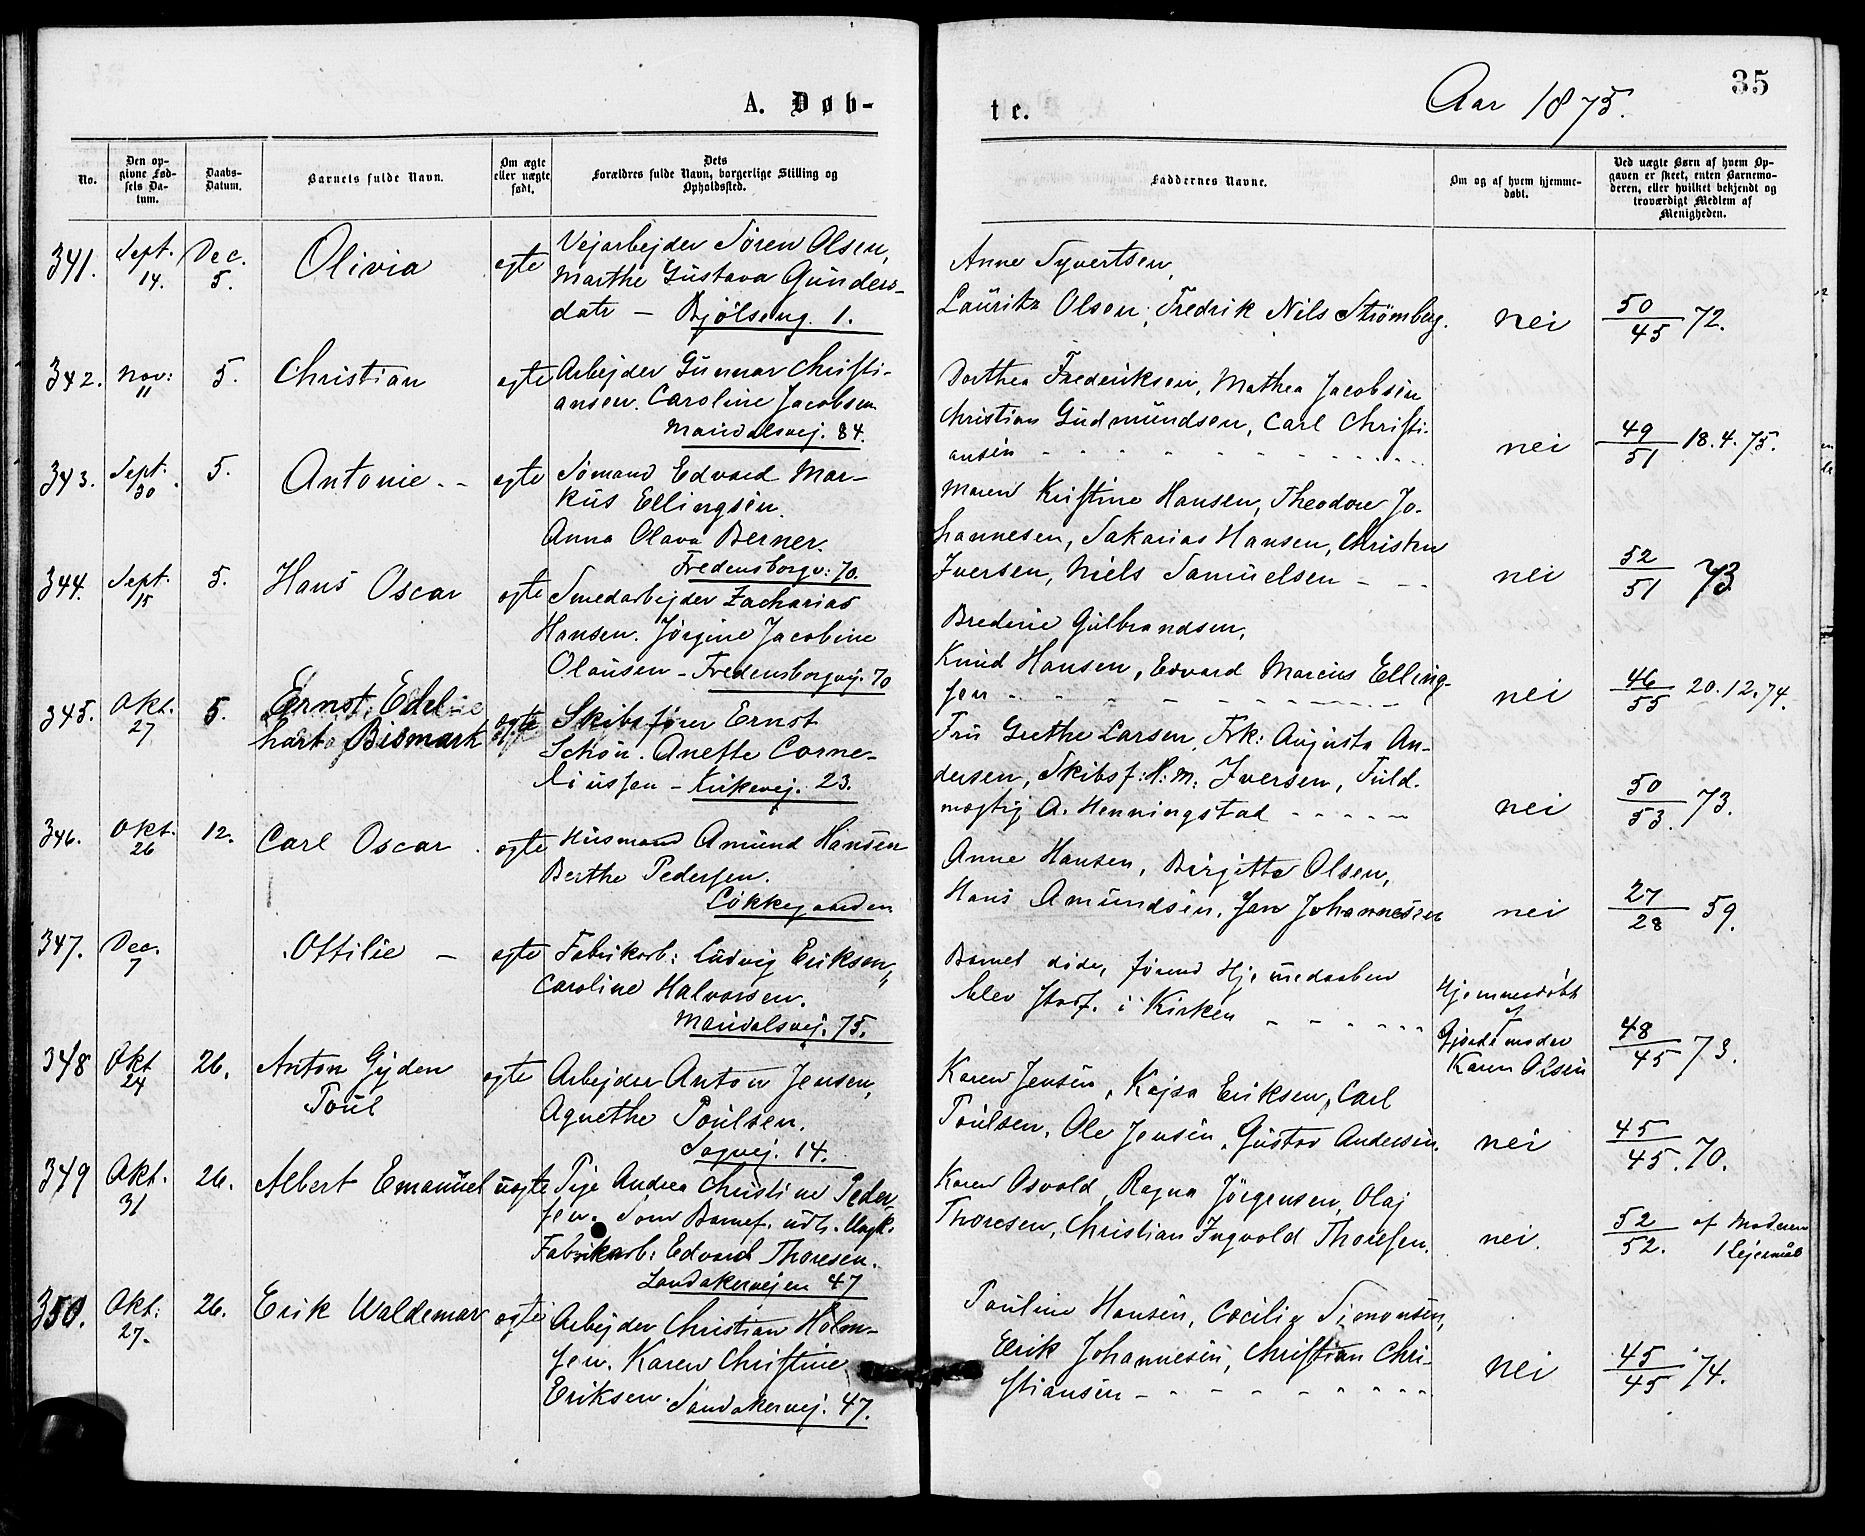 A. Døb-
te.
Aar 1875.
35
No.
Den op-
givne Fød-
sels Da-
tum.
Daabs-
Datum.
Barnets fulde Navn.
Om ægte
eller uægte
født.
Dets
Forældres fulde Navn, borgerlige Stilling og
Opholdssted.
Faddernes Navne.
Om og af hvem hjemme-
døbt.
Ved uægte Børn af hvem Op-
gaven er skeet, enten Barnemo-
deren, eller hvilket bekjendt og
troværdigt Medlem af
Menigheden.
341. Sept. 14. Dec. 5. Olivia egte
Vejarbejder Søren Olsen,
Marthe Gustava Gunders-
datr — Bjölseng. 1.
Anne Syvertsen,
Lauritz Olsen, Fredrik Nils Strømberg.
nei
50/45 72.
342. Nov: 11 5. Christian egte
Arbejder Gunnar Christi-
ansen. Caroline Jacobsen
Maridalsvej. 84.
Dorthea Frederiksen, Mathea Jacobsen
Christian Gudmundsen, Carl Christi-
ansen
nei
49/51 18.4.75.
343. Sept. 30. 5. Antonie egte
Sömand Edvard Mar-
kus Ellingsen.
Anna Olava Berner.
Fredensborgv: 70.
Maren Kristine Hansen, Theodore Jo-
hannesen, Sakarias Hansen, Christen
Iversen, Niels Samuelsen
nei
52/51 73
344. Sept. 15 5. Hans Oscar egte
Smedarbejder Zacharias
Hansen. Jörgine Jacobine
Olausen - Fredensborgvej. 70
Bredine Gulbrandsen,
Knud Hansen, Edvard Marcus Elling-
sen
nei
46/55 20.12.74.
345. Okt. 27 5. Ernst
Bismark egte
Skibsfører Ernst
Schön. Anette Corne-
liussen - Kirkevej. 23.
Fru Grethe Larsen, Frk: Augusta An-
dersen, Skibsf: H: M: Iversen, Fuld.
mægtig A. Henningstad
nei
50/53. 73.
346. Okt. 26 12. Carl Oscar. egte
Husmand Amund Hansen
Berthe Pedersen.
Løkkegaarden
Anne Hansen, Birgitte Olsen,
Hans Amundsen, Jan Johannesen
nei
27/28 59.
347. Dec. 7 Ottilie — egte
Fabrikarb: Ludvig Eriksen,
Caroline Halvorsen.
Maridalsvej. 75.
Barnet døde, førend Hjemmedaaben
blev stadf. i Kirken
Hjemmedøbt
af
Gjordemoder
Karen Olsen
48/45 73.
348 Okt 24 26. Anton Gyden
Poul egte
Arbejder Anton Jensen,
Agnethe Poulsen.
Sagvej. 14.
Karen Jensen, Kajsa Eriksen, Carl
Poulsen, Ole Jensen, Gustav Andersen.
nei
45/45. 70.
349 Okt. 31 26. Albert Emanuel uegte
Pige Andrea Christine Peder-
sen. Som Barnef. udl. Ungk.
Fabrikarb: Edvard Thoresen.
Sandakerveien 47
Karen Osvold, Ragna Jörgensen, Olaj
Thoresen, Christian Ingvold Thoresen.
nei.
52/52. af Moderen
1 Lejermål
350. Okt: 27. 26. Erik Waldemar egte
Arbejder Christian Holm-
sen. Karen Christine
Eriksen. Sandakervej. 47.
Pauline Hansen, Cæcilie Simonsen,
Erik Johannesen, Christian Chri-
stiansen
nei
45/45 74.